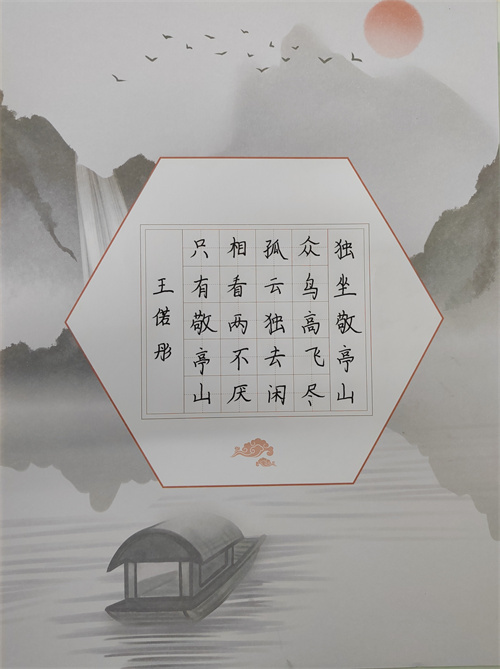 独坐敬亭山
众鸟高飞尽
孤云独去闲
相看两不厌
只有敬亭山
王偌彤